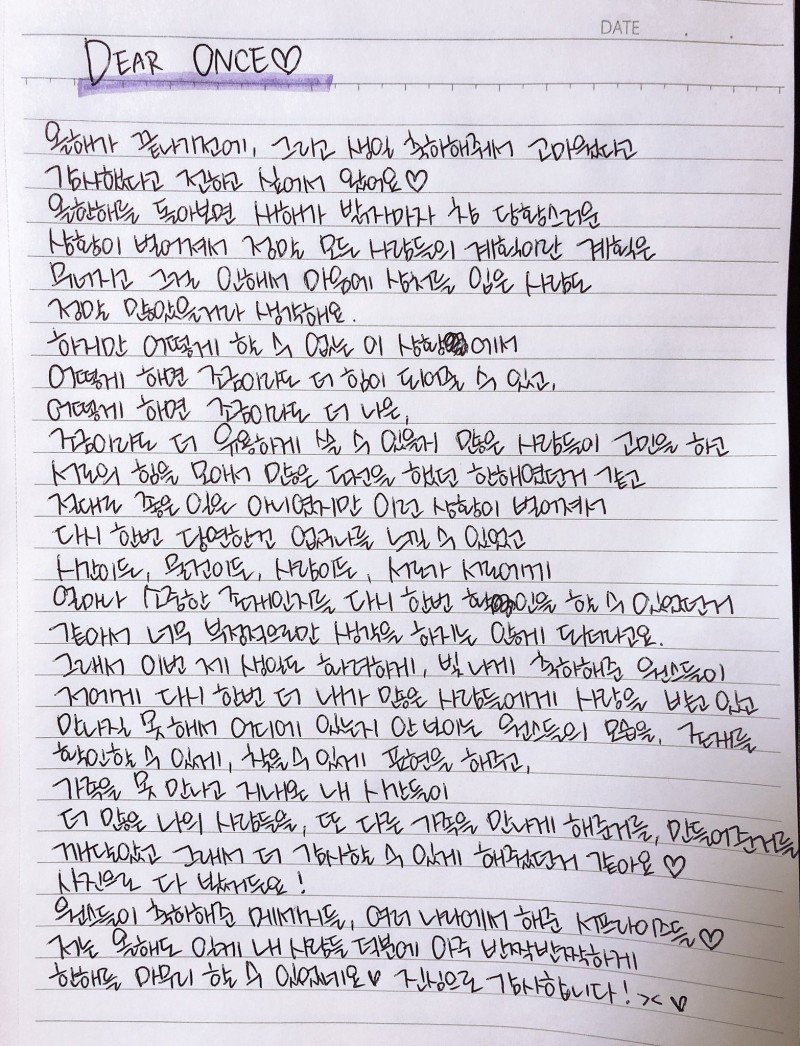 DATE . .
DEAR ONCE♡
올해가 끝나기전에, 그리고 생일 축하해줘서 고마웠다고
감사했다고 전하고 싶어서 왔어요♡
올한해를 돌아보면 새해가 밝자마자 참 당황스러운
상황이 벌어져서 정말 모든 사람들의 계획이란 계획은
무너지고 그로 인해서 마음에 상처를 입은 사람도
정말 많았을거라 생각해요.
하지만 어떻게 할 수 없는 이 상황에서
어떻게 하면 조금이라도 더 힘이 되어줄 수 있고,
어떻게 하면 조금이라도 더 나은,
조금이라도 더 유용하게 쓸 수 있을지 많은 사람들이 고민을 하고
서로의 힘을 모아서 많은 도전을 했던 한해였던거 같고
절대로 좋은 일은 아니였지만 이런 상황이 벌어져서
다시 한번 당연한건 없구나를 느낄 수 있었고
시간이든, 물건이든, 사람이든, 서로가 서로에게
얼마나 소중한 존재인지를 다시 한번 확인을 할 수 있었던거
같아서 너무 부정적으로만 생각을 하지는 않게 되더라고요.
그래서 이번 제 생일도 화려하게, 빛나게 축하해준 원스들이
저에게 다시 한번 더 내가 많은 사람들에게 사랑을 받고 있고
만나질 못해서 어디에 있는지 안보이는 원스들의 모습을, 존재를
확인할 수 있게, 찾을수 있게 표현을 해주고,
가족을 못 만나고 지내온 내 시간들이
더 많은 나의 사람들을, 또 다른 가족을 만나게 해준거를, 만들어준거를
깨달았고 그래서 더 감사할 수 있게 해주었던거 같아요♡
사진으로 다 봤어요!
원스들이 축하해준 메세지들, 여러 나라에서 해준 서프라이즈들♡
저는 올해도 이렇게 내 사람들 덕분에 아주 반짝반짝하게
한해를 마무리 할 수 있었네요♥ 진심으로 감사합니다! >< ♥